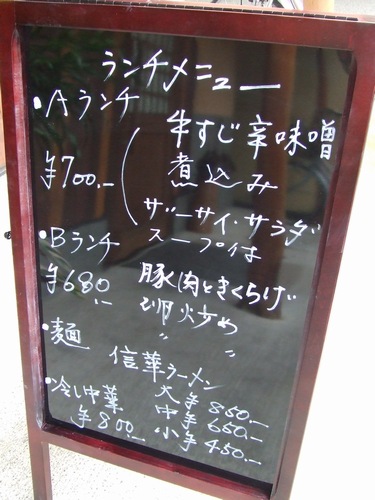 ランチメニュー
・Aランチ
¥700.-
牛すじ辛味噌
煮込み
ザーサイ・サラダ
スープ付
・Bランチ
¥680.-
豚肉ときくらげ
卵炒め
〃 〃
・麺
信華ラーメン
冷し中華
¥800.-
大¥850.-
中¥650.-
小¥450.-